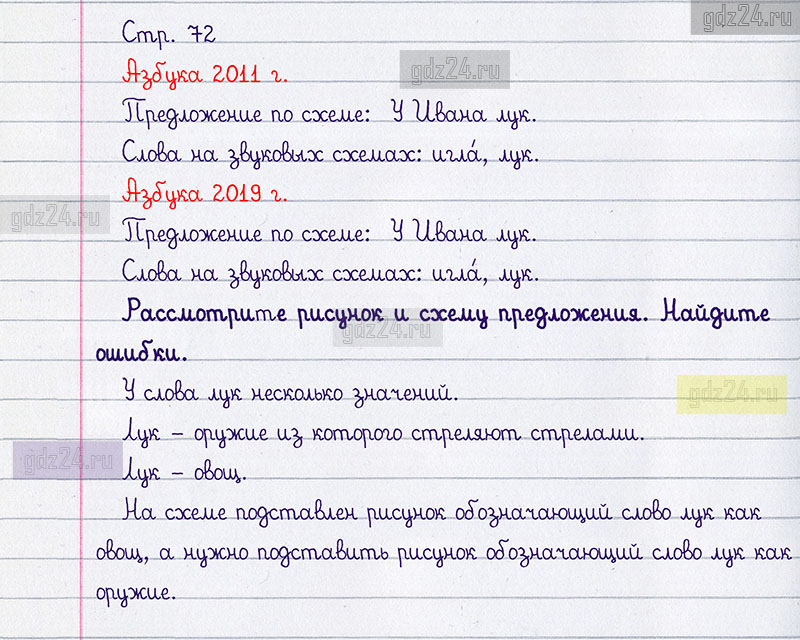 gdz24.ru
Стр. 72
Азбука 2011 г.
gdz24.ru
Предложение по схеме: У Ивана лук.
Слова на звуковых схемах: игла́, лук.
Азбука 2019 г.
gdz24.ru
Предложение по схеме: У Ивана лук.
Слова на звуковых схемах: игла́, лук.
Рассмотрите рисунок и схему предложения. Найдите
gdz24.ru
ошибки.
У слова лук несколько значений.
gdz24.ru
Лук – оружие из которого стреляют стрелами.
gdz24.ru
Лук – овощ.
На схеме подставлен рисунок обозначающий слово лук как
овощ, а нужно подставить рисунок обозначающий слово лук как
оружие.